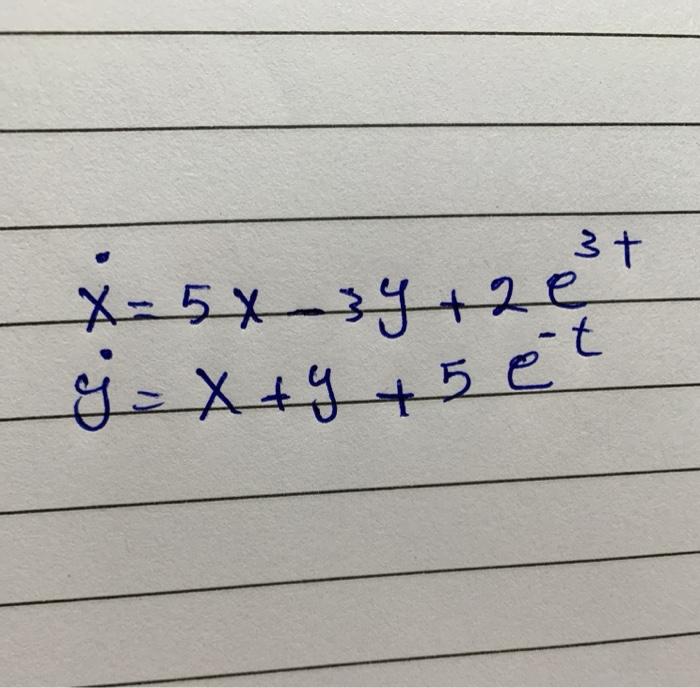 ẋ = 5x - 3y + 2e^{3t}
ẏ = x + y + 5e^{-t}